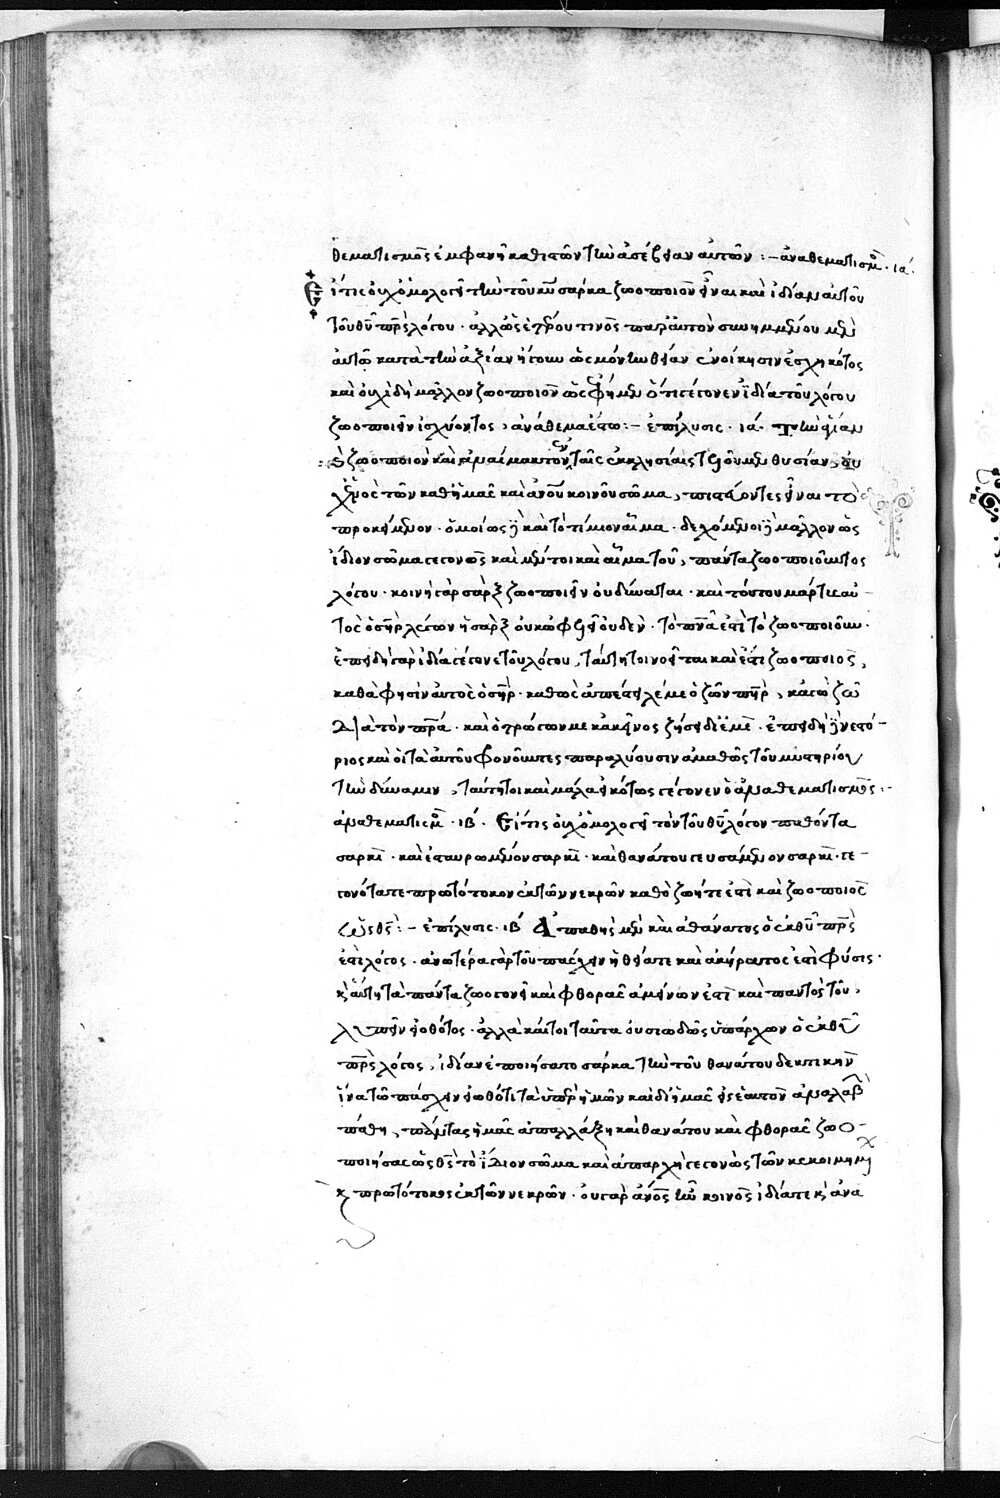 θεματισμὸς ἐμφανῆ καθιστῶν τὴν ἀσέβειαν αὐτῶν :– ἀναθεματισμ ιά.
Εἴ τις οὐχ ὁμολογεῖ τὴν τοῦ κυ σάρκα ζωοποιὸν εἶναι καὶ ἰδίαν αὐτοῦ
τοῦ θυ πρς λόγου · ἀλλ' ὡς ἑτέρου τινὸς παρ' αὐτὸν συνημμένου μὲν
αὐτῶ κατὰ τὴν ἀξίαν ἤγουν ὡς μόνην θείαν ἐνοίκησιν ἐσχηκότος
καὶ οὐχὶ δὴ μᾶλλον ζωοποιὸν ὡς ἔφημεν ὅτι γέγονεν ἰδία τοῦ λόγου
ζωοποιεῖν ἰσχύοντος, ἀνάθεμα ἔστω :– ἐπίλυσις · ιά · Τὴν ἁγίαν
καὶ ζωοποιὸν καὶ ἀναίμακτον ἐν ταῖς ἐκκλησίαις τελοῦμεν θυσίαν, οὐ
χ ἑνὸς τῶν καθ' ἡμᾶς καὶ ἀνου κοινοῦ σῶμα, πιστεύοντες εἶναι τὸ
προκείμενον · ὁμοίως δὲ καὶ τὸ τίμιον αἷμα · δεχόμενοι δὲ μᾶλλον ὡς
ἴδιον σῶμα γεγονὸς καὶ μέντοι καὶ αἷμα τοῦ, πάντα ζωοποιοῦντος
λόγου · κοινὴ γὰρ σὰρξ ζωοποιεῖν οὐ δύναται · καὶ τούτου μάρτυς αὐ-
τὸς ὁ σηρ λέγων ἡ σὰρξ οὐκ ὠφελεῖ οὐδέν · τὸ πνα ἐστὶ τὸ ζωοποιοῦν ·
ἐπειδὴ γὰρ ἰδία γέγονε τοῦ λόγου, ταύτη τοι νοεῖται καὶ ἔστι ζωοποιὸς,
καθὰ φησὶν αὐτὸς ὁ σηρ · καθὼς ἀπέστειλέ με ὁ ζῶν πηρ, κἀγὼ ζῶ
διὰ τὸν πρα · καὶ ὁ τρώγων με κἀκεῖνος ζήσει δι' ἐμὲ · ἐπειδὴ δὲ νεστό-
ριος καὶ οἱ τὰ αὐτοῦ φρονοῦντες παραλύουσιν ἀμαθῶς τοῦ μυστηρίου
τὴν δύναμιν, ταύτη τοι καὶ μάλα εἰκότως γέγονεν ὁ ἀναθεματισμὸς :-
ἀναθεματισμ · ιβ · Εἴ τις οὐχ ὁμολογεῖ τὸν τοῦ θυ λόγον παθόντα
σαρκὶ · καὶ ἐσταυρωμένον σαρκὶ · καὶ θανάτου γευσάμενον σαρκὶ · γε-
γονότα τε πρωτότοκον ἐκ τῶν νεκρῶν καθὸ ζωή τέ ἐστὶ καὶ ζωοποιὸς
ὡς θς :– ἐπίλυσις · ιβ Ἀπαθὴς μὲν καὶ ἀθάνατος ὁ ἐκ θυ πρς
ἐστὶ λόγος · ἀνωτέρα γὰρ τοῦ πάσχειν ἡ θεία τε καὶ ἀκήρατος ἐστὶ φύσις ·
κ αὕτη τὰ πάντα ζωογονεῖ καὶ φθορᾶς ἀμείνων ἐστὶ καὶ παντὸς τοῦ,
λυπεῖν εἰωθότος · ἀλλὰ καί τοι ταῦτα οὐσιωδῶς ὑπάρχων ὁ ἐκ θυ
πρς λόγος, ἰδίαν ἐποιήσατο σάρκα τὴν τοῦ θανάτου δεκτικὴν
ἵνα τῶ πάσχειν εἰωθότι τὰ ὑπὲρ ἡμῶν καὶ δι' ἡμᾶς εἰς ἑαυτὸν ἀναλαβ
πάθη, πάντας ἡμᾶς ἀπαλλάξη καὶ θανάτου καὶ φθορᾶς ζωο-
ποιήσας ὡς θς τὸ ἴδιον σῶμα καὶ ἀπαρχὴ γεγονὼς τῶν κεκοιμημ
κ πρωτότοκος ἐκ τῶν νεκρῶν · οὐ γὰρ ἀνος ἦν κοινὸς ἰδία τε κ ἀνα